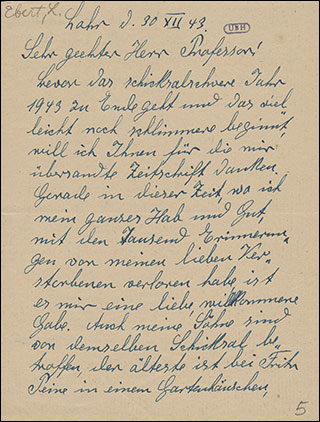 Ebert, L.
Lahr d. 30 XII 43.
UBH
Sehr geehrter Herr Professor!
bevor das schicksalschwere Jahr
1943 zu Ende geht und das viel
leicht noch schlimmere beginnt,
will ich Ihnen für die mir
übersandte Zeitschrift danken.
Gerade in dieser Zeit, wo ich
mein ganzes Hab und Gut,
mit den Tausend Erinnerun-
gen von meinen lieben Ver-
storbenen verloren habe ist
es mir eine liebe, willkommene
Gabe. Auch meine Söhne sind
von demselben Schicksal be-
troffen, der älteste ist bei
in einem Gartenhäuschen,
5